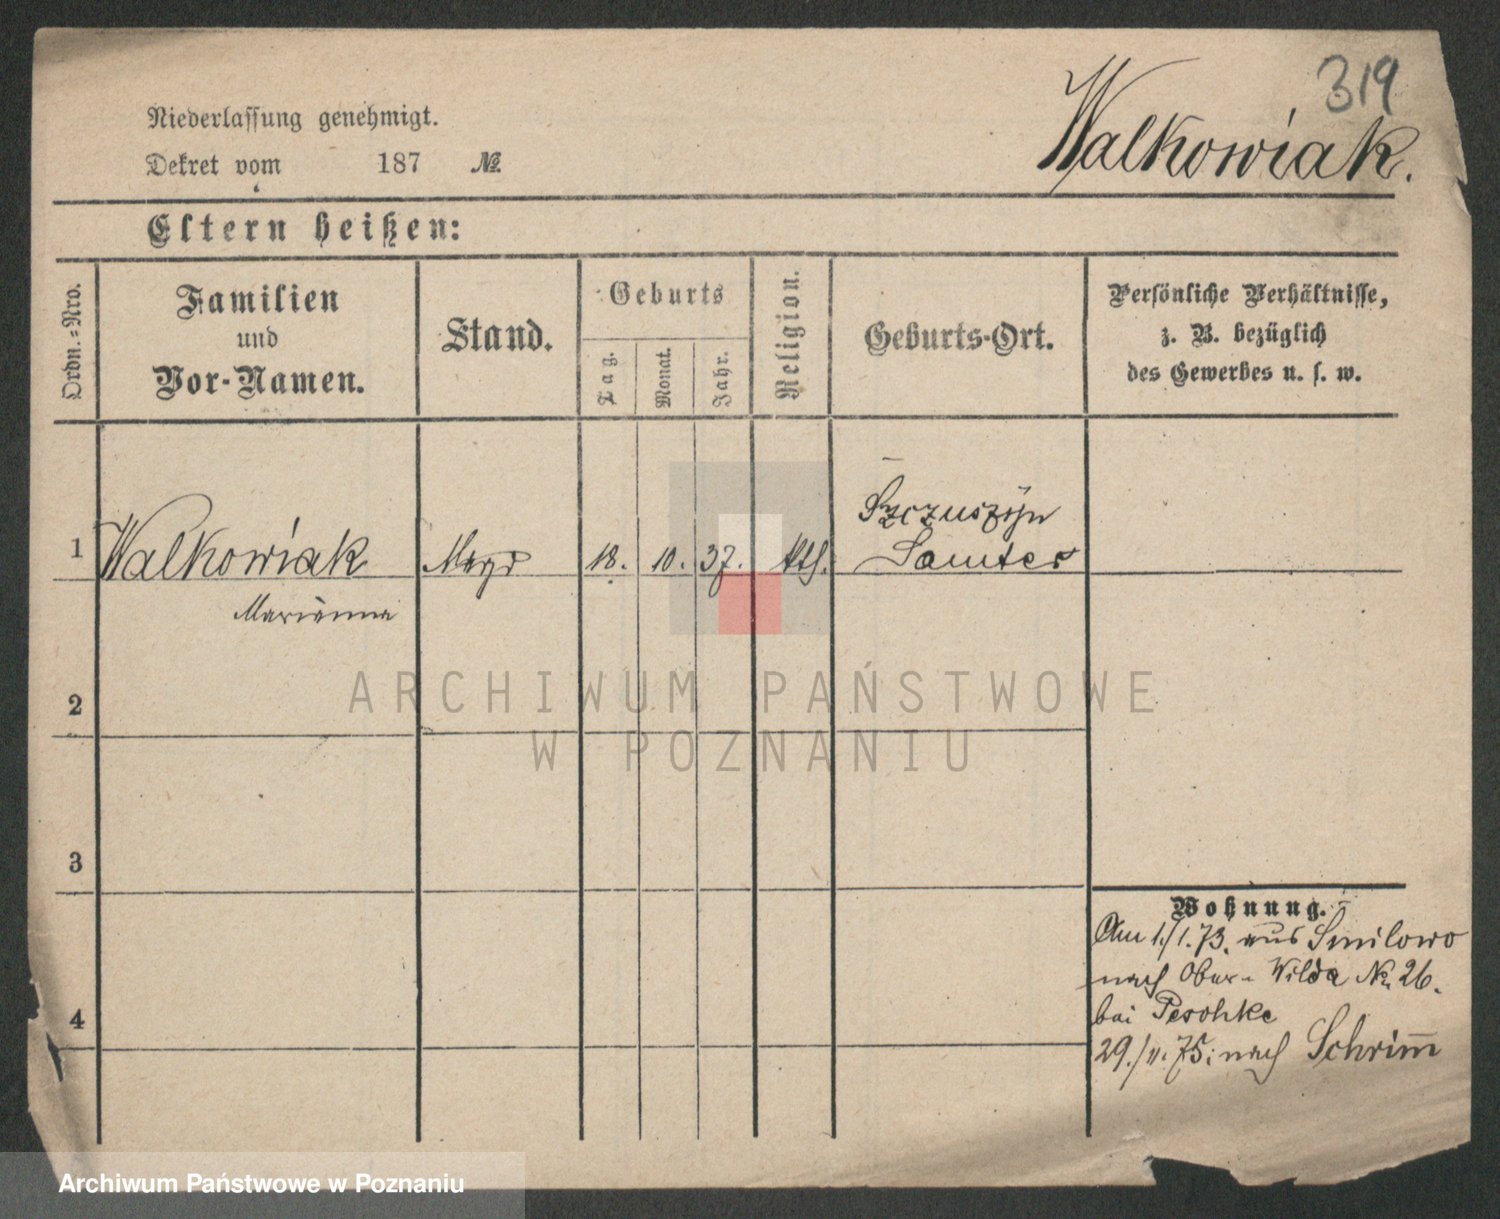 319
Walkowiak.
Niederlassung genehmigt.
Dekret vom 187 №
Eltern heißen:
Ordn.-Nro.
Familien
und
Vor-Namen.
Stand.
Geburts
Tag.
Monat.
Jahr.
Religion.
Geburts-Ort.
Persönliche Verhältnisse,
z. B. bezüglich
des Gewerbes u. s. w.
1 Walkowiak Magd 18. 10. 37. kth. Szczuszyn
Samter
Marianna
2
3
4
Wohnung.
Am 1./1. 73. aus Smilowo
nach Ober-Wilda № 26.
bei Peschke
29./11. 75. nach Schrimm
ARCHIWUM PAŃSTWOWE
W POZNANIU
Archiwum Państwowe w Poznaniu